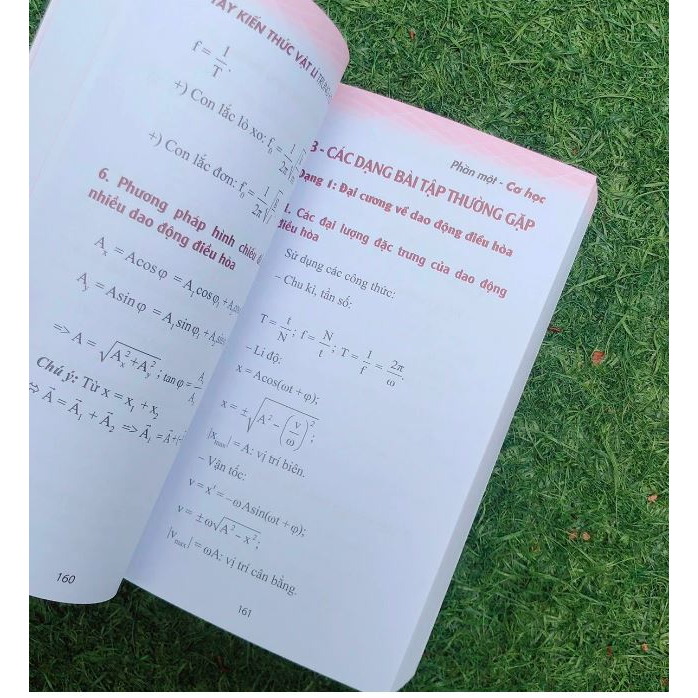 TAY KIẾN THỨC VẬT LÍ TRUNG
f = 1/T.
+) Con lắc lò xo: f₀ = 1/2π √
+) Con lắc đơn: f₀ = 1/2π √
6. Phương pháp hình chiếu
nhiều dao động điều hòa
Aₓ = Acosφ = A₁cosφ₁ + A₂
Aᵧ = Asinφ = A₁sinφ₁ + A₂sin
=> A = √(Aₓ² + Aᵧ²); tanφ =
Chú ý: Từ x = x₁ + x₂
⇔ A⃗ = A⃗₁ + A⃗₂ => A⃗₁ = A⃗ + (-
160
Phần một - Cơ học
3 - CÁC DẠNG BÀI TẬP THƯỜNG GẶP
Dạng 1: Đại cương về dao động điều hòa
1. Các đại lượng đặc trưng của dao động
điều hòa
Sử dụng các công thức:
– Chu kì, tần số:
T = t/N; f = N/t; T = 1/f = 2π/ω.
– Li độ:
x = Acos(ωt + φ);
x = ±√(A² – (v/ω)²);
|xmax| = A: vị trí biên.
– Vận tốc:
v = x' = –ωAsin(ωt + φ);
v = ±ω√(A² – x²);
|vmax| = ωA: vị trí cân bằng.
161